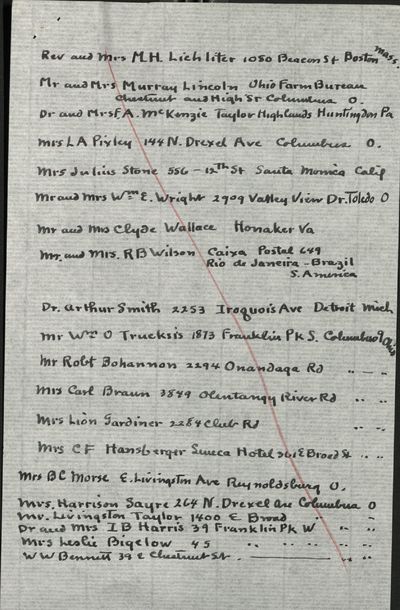 Rev and Mrs M.H. Lichliter 1050 Beacon St Boston Mass.
Mr and Mrs Murray Lincoln Ohio Farm Bureau
Chestnut and High Sr Columbus O.
Dr and Mrs F A. McKenzie Taylor Highlands Huntingdon Pa
Mrs L A Pixley 144 N. Drexel Ave Columbus O.
Mrs Julius Stone 556 - 12th St Santa Monica Calif
Mr and Mrs Wm E. Wright 2909 Valley View Dr. Toledo O
Mr and Mrs Clyde Wallace Honaker Va
Mr. and Mrs. R B Wilson Caixa Postal 649
Rio de Janeira - Brazil
S. America
Dr. Arthur Smith 2253 Iroquois Ave Detroit Mich
Mr Wm O Trucksis 1873 Franklin Pk S. Columbus Ohio
Mr Robt Bohannon 2294 Onandaga Rd " - "
Mrs Carl Braun 3849 Olentangy River Rd " "
Mrs Lion Gardiner 2284 Club Rd " "
Mrs C F Hansberger Seneca Hotel 361 E Broad St " "
Mrs B C Morse E. Livingston Ave Reynoldsburg O.
Mrs. Harrison Sayre 264 N. Drexel Ave Columbus O
Mr. Livingston Taylor 1400 E Broad "
Dr and Mrs I B Harris 39 Franklin Pk W " "
Mrs Leslie Bigelow 45 " " " " "
W W Bennett 39 E Chestnut St. " "